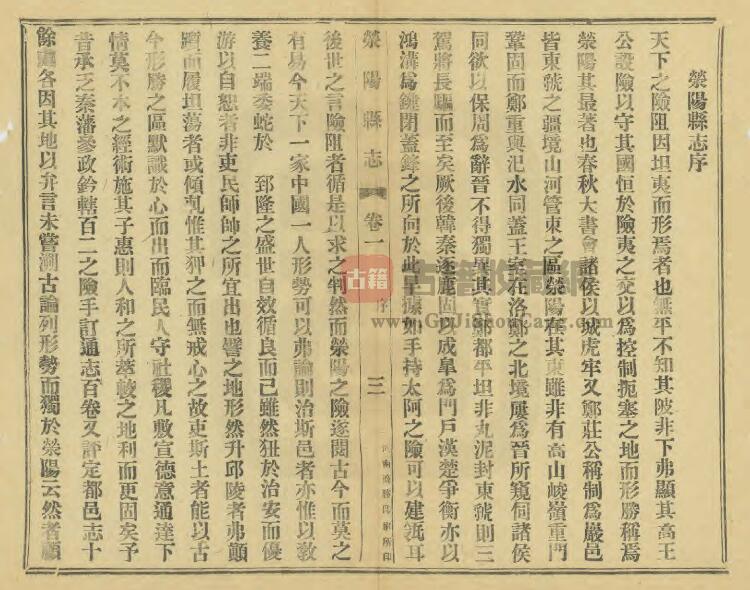 滎陽縣志序
天下之險阻因坦夷而形焉者也無平不知其陂非下弗顯其高王
公設險以守其國恒於險夷之交以爲控制扼塞之地而形勝稱焉
滎陽其最著也春秋大書會諸侯以城虎牢又鄭莊公稱制爲嚴邑
皆東虢之疆境山河管束之區滎陽在其東雖非有高山峻嶺重門
鞏固而鄭重與汜水同蓋王室在洛鄭之北境屢爲晉所窺伺諸侯
同欲以保周爲辭晉不得獨異其實鄭都平坦非丸泥封東虢則三
駕將長驅而至矣厥後韓秦逐鹿固以成臯爲門戶漢楚爭衡亦以
鴻溝爲鍵閉蓋鋒之所向於此早據如手持太阿之險可以建瓴耳
滎陽縣志
卷一
序
三
後世之言險阻者循是以求之判然而滎陽之險遂閱古今而莫之
有易今天下一家中國一人形勢可以弗論則治斯邑者亦惟以敎
養二端委蛇於 郅隆之盛世自效循良而已雖然狃於治安而優
游以自恕者非吏民師帥之所宜出也譬之地形然升邱陵者弗顚
躓而履坦蕩者或傾軋惟其狎之而無戒心之故吏斯土者能以古
今形勝之區默識於心而出而臨民人守社稷凡敷宣德意通達下
情莫不本之經術施其子惠則人和之所萃較之地利而更固矣予
昔承乏秦藩參政鈐轄百二之險手訂通志百卷又評定都邑志十
餘種各因其地以弁言未嘗溯古論列形勢而獨於滎陽云然者顧
古籍
古籍收藏網
www.GuJiShouCang.com